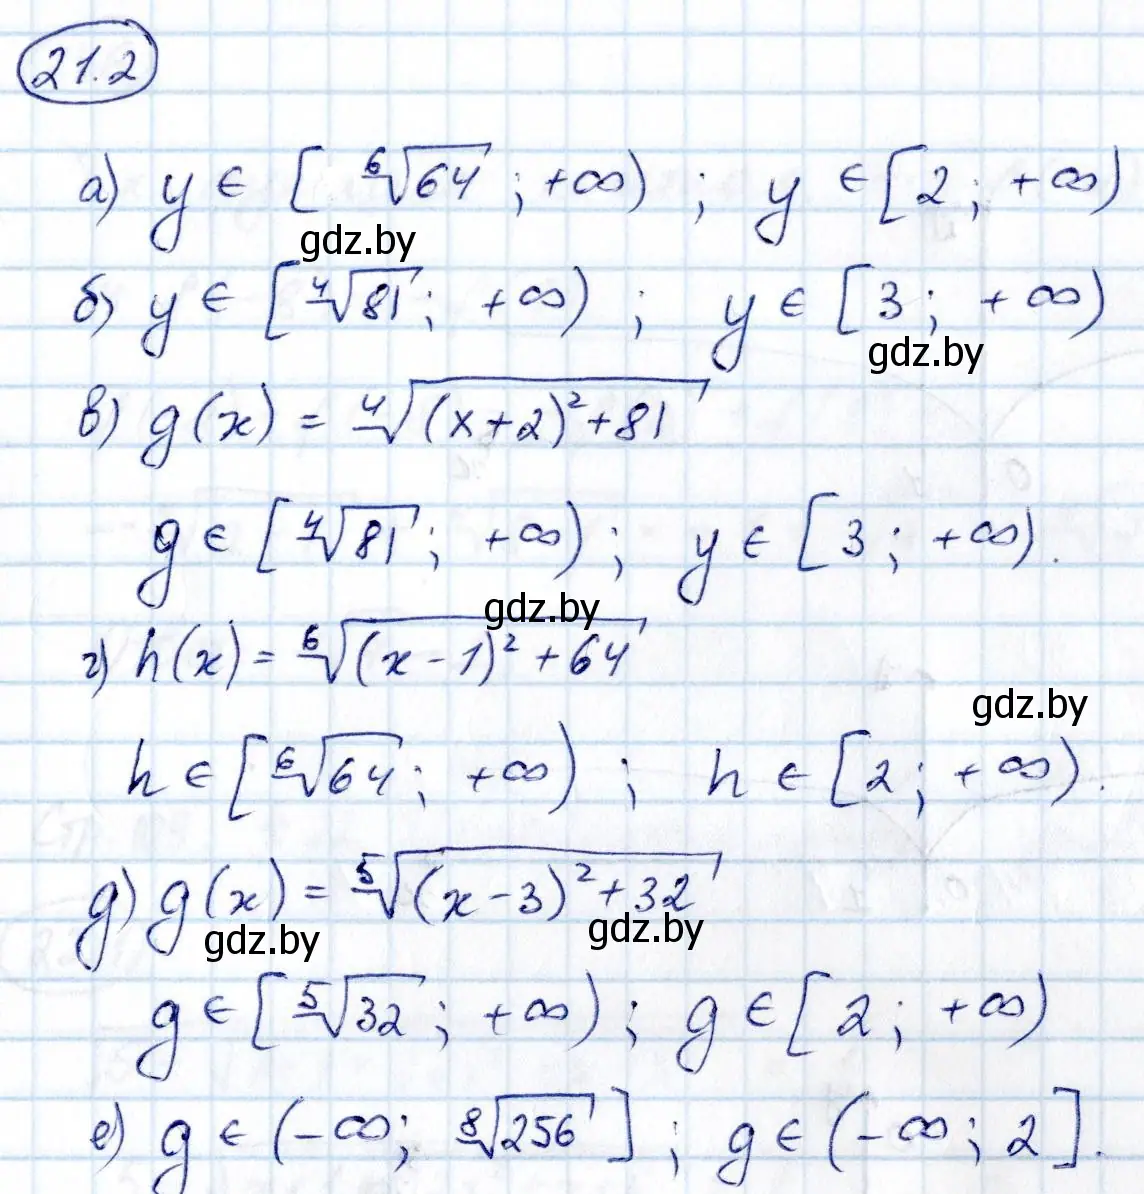 21.2
а) y ∈ [⁶√64 ; +∞) ; y ∈ [2 ; +∞)
gdz.by
б) y ∈ [⁴√81 ; +∞) ; y ∈ [3 ; +∞)
gdz.by
в) g(x) = ⁴√((x+2)²+81)
g ∈ [⁴√81 ; +∞) ; y ∈ [3 ; +∞).
gdz.by
г) h(x) = ⁶√((x-1)²+64)
gdz.by
h ∈ [⁶√64 ; +∞) ; h ∈ [2 ; +∞).
д) g(x) = ⁵√((x-3)²+32)
gdz.by gdz.by
g ∈ [⁵√32 ; +∞) ; g ∈ [2 ; +∞)
е) g ∈ (-∞ ; ⁸√256] ; g ∈ (-∞ ; 2].